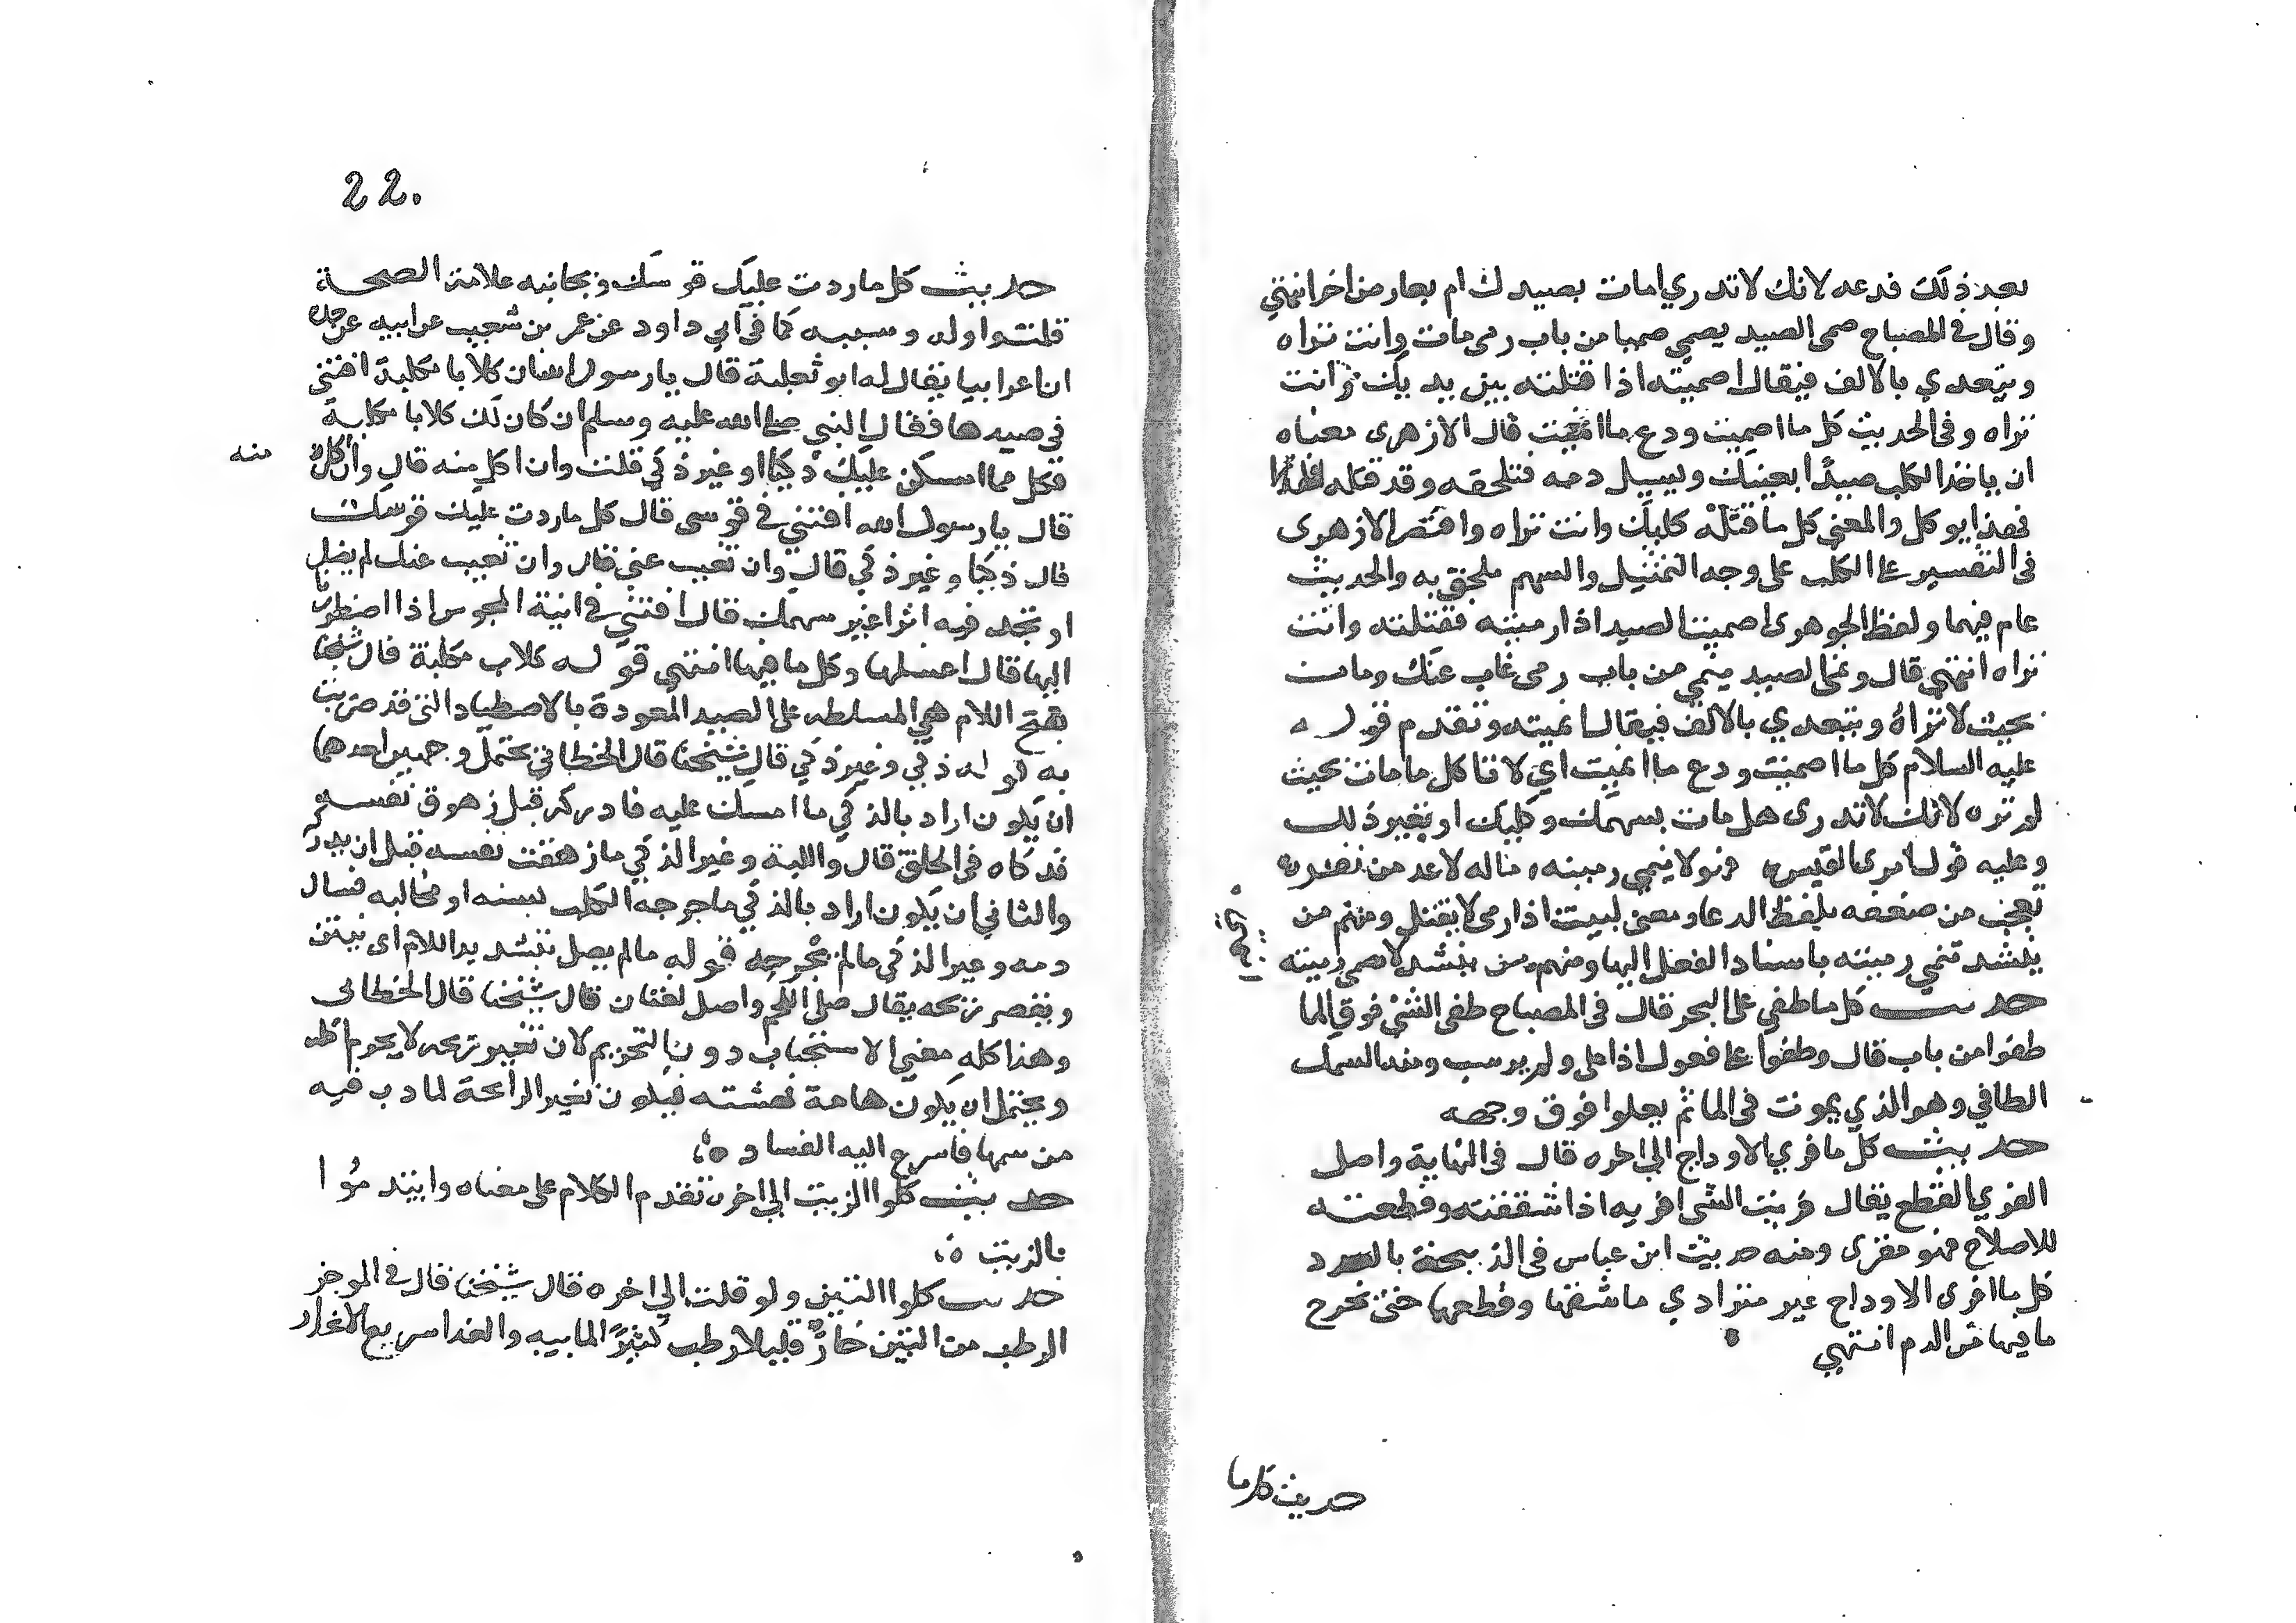 بعد ذلك فدعه لانك لا تدري امات بصيدك ام بعارض اخر انتهى
وقال في المصباح صمى الصيد يصمي صميا من باب رمى مات وانت تراه
ويتعدي بالالف فيقال اصميته اذا قتلته بين يديك وانت
تراه وفي الحديث كل ما اصميت ودع ما انميت قال الازهرى معناه
ان ياخذ الكلب صيدا بعينك ويسيل دمه فتلحقه وقد قتله
فهذا يوكل والمعنى كل ما قتله كلبك وانت تراه واقتصر الازهرى
في التفسير على الكلب على وجه التمثيل والسهم ملحق به والحديث
عام فيهما ولفظ الجوهرى اصميت الصيد اذا رميته فقتلته وانت
تراه انتهى قال ونمى الصيد ينمي من باب رمى غاب عنك ومات
بحيث لا تراه ويتعدي بالالف فيقال انميته وتقدم قوله
عليه السلام كل ما اصميت ودع ما انميت اي لا تاكل ما مات بحيث
لم تره لانك لا تدرى هل مات بسهمك وكلبك او بغير ذلك
وعليه قول امرى القيس فهو لا ينمي رميته ماله لا عد من نفره
تعجب من ضعفه بلفظ الدعا ومعنى لبيت اذا رمى لا يقتل ومنهم من
ينشد تنمي رميته باسناد الفعل اليها ومنهم من ينشد لا يصمي رميته
حديث كل ما طفي على البحر قال في المصباح طفى الشئ فوق الما
طفوا من باب قال وطفوا على فعول اذا على ولم يرسب ومنه السمك
الطافي وهو الذي يموت في الما ثم يعلوا فوق وجهه
حديث كل ما فري الاوداج الي اخره قال في النهاية واصل
الفري القطع يقال فريت الشى افريه اذا شققته وقطعته
للاصلاح فهو مفرى ومنه حديث ابن عباس في الذبيحة بالعود
كل ما افرى الاوداج غير متراد ي ما شقها وقطعها حتى يخرج
ما فيها من الدم انتهى
انتهى
حديث كل ما
22.
حديث كل ما ردت عليك قوسك وبجانبه علامة الصحة
قلت واوله وسببه كما في ابي داود عن عمر بن شعيب عن ابيه عن جده
ان اعرابيا يقال له ابو ثعلبة قال يا رسول الله ان كلابا مكلبة افتني
في صيدها فقال النبي صلى الله عليه وسلم ان كان لك كلابا مكلبة
فكل مما امسكن عليك ذكيا او غير ذكي قلت وان اكل منه قال وان اكل
منه
قال يا رسول الله افتني في قوسى قال كل ما ردت عليك قوسك
قال ذكيا وغير ذكي قال وان تغيب عني قال وان تغيب عنك لم يضل
او تجد فيه اثرا غير سهمك قال افتني في انية المجوس اذا اضطررنا
اليها قال اغسلها وكل ما فيها انتهى قوله كلاب مكلبة قال شيخنا
بفتح اللام هي المسلطه على الصيد المعودة بالاصطياد التي قد ضريت
به قوله ذكي وغير ذكي قال شيخنا قال الخطابي يحتمل وجهين احدهما
ان يكون اراد بالذكي ما امسك عليه فادركه قبل زهوق نفسه
فذكاه في الحلق قال واللبة وغير الذكي ما زهقت نفسه قبل ان يدركه
والثاني ان يكون اراد بالذكي ما جرحه الكلب بسنه او مخالبه فسال
دمه وغير الذكي ما لم يجرحه قوله ما لم يصل بتشديد اللام اى ينتن
ويتغير ريحه يقال صل اللحم واصل لغتان قال شيخنا قال الخطابى
وهذا كله معني الاستحباب دون التحريم لان تغير ريحه لا يحرم اكله
ويحتمل ان يكون هامة نهشته فيكون تغير الرائحة لما دب فيه
من سمها فاسرع اليه الفساد
حديث كلوا الزيت الي اخره تقدم الكلام على معناه وايتدموا
بالزيت
حديث كلوا التين ولو قلت الي اخره قال شيخنا قال في الموجز
الرطب من التين حار قليلا رطب كثير المابيه والغدا سريع الانحدار